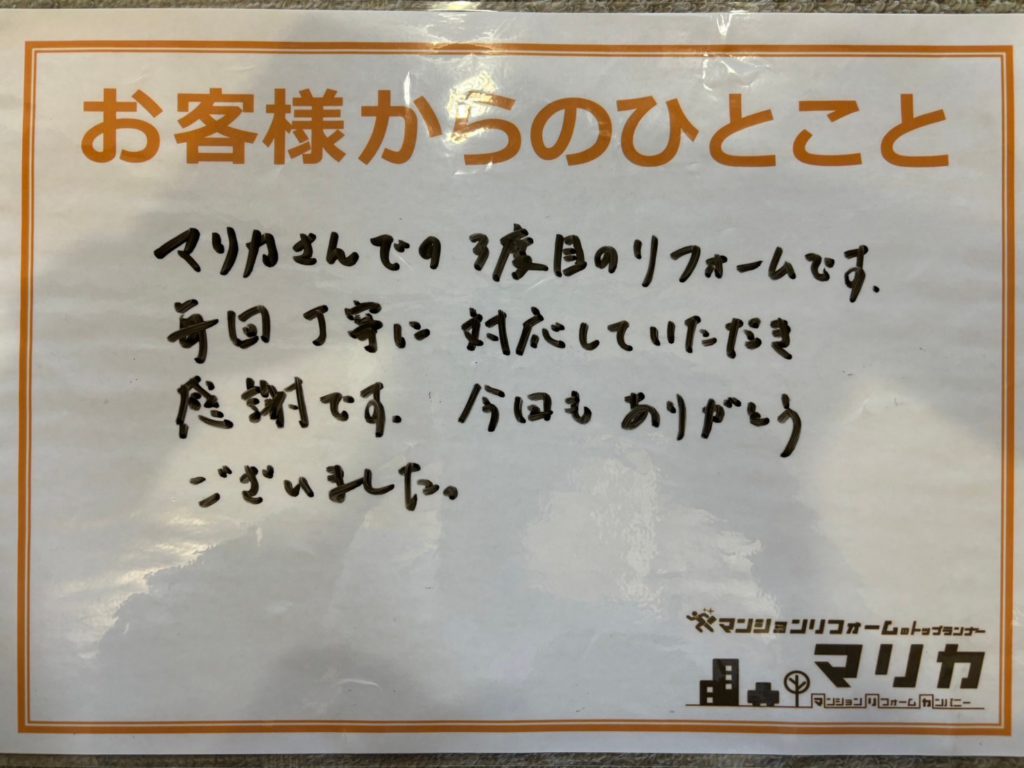 お客様からのひとこと
マリカさんでの3度目のリフォームです.
毎回丁寧に対応していただき
感謝です. 今回も ありがとう
ございました。
マンションリフォームのトップランナー
マリカ
マンションリフォームカンパニー